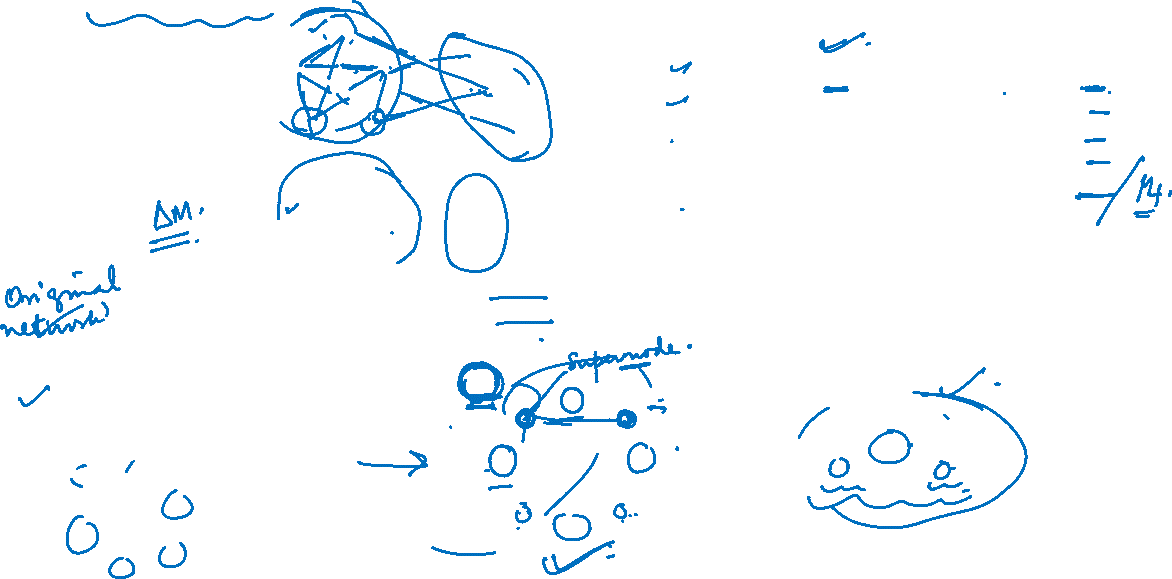 ΔM.
Original
network
Supernode.